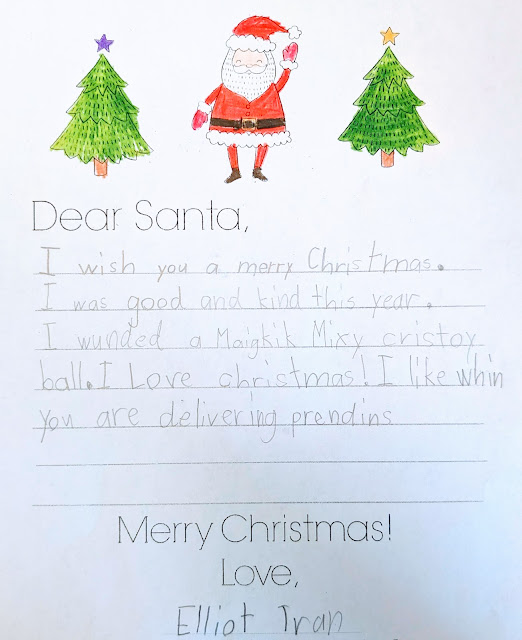 Dear Santa,
I wish you a merry Christmas.
I was good and kind this year.
I wunded a Maigkik Mixy cristoy
ball. I Love christmas! I like whin
you are delivering prendins
Merry Christmas!
Love,
Elliot Tran